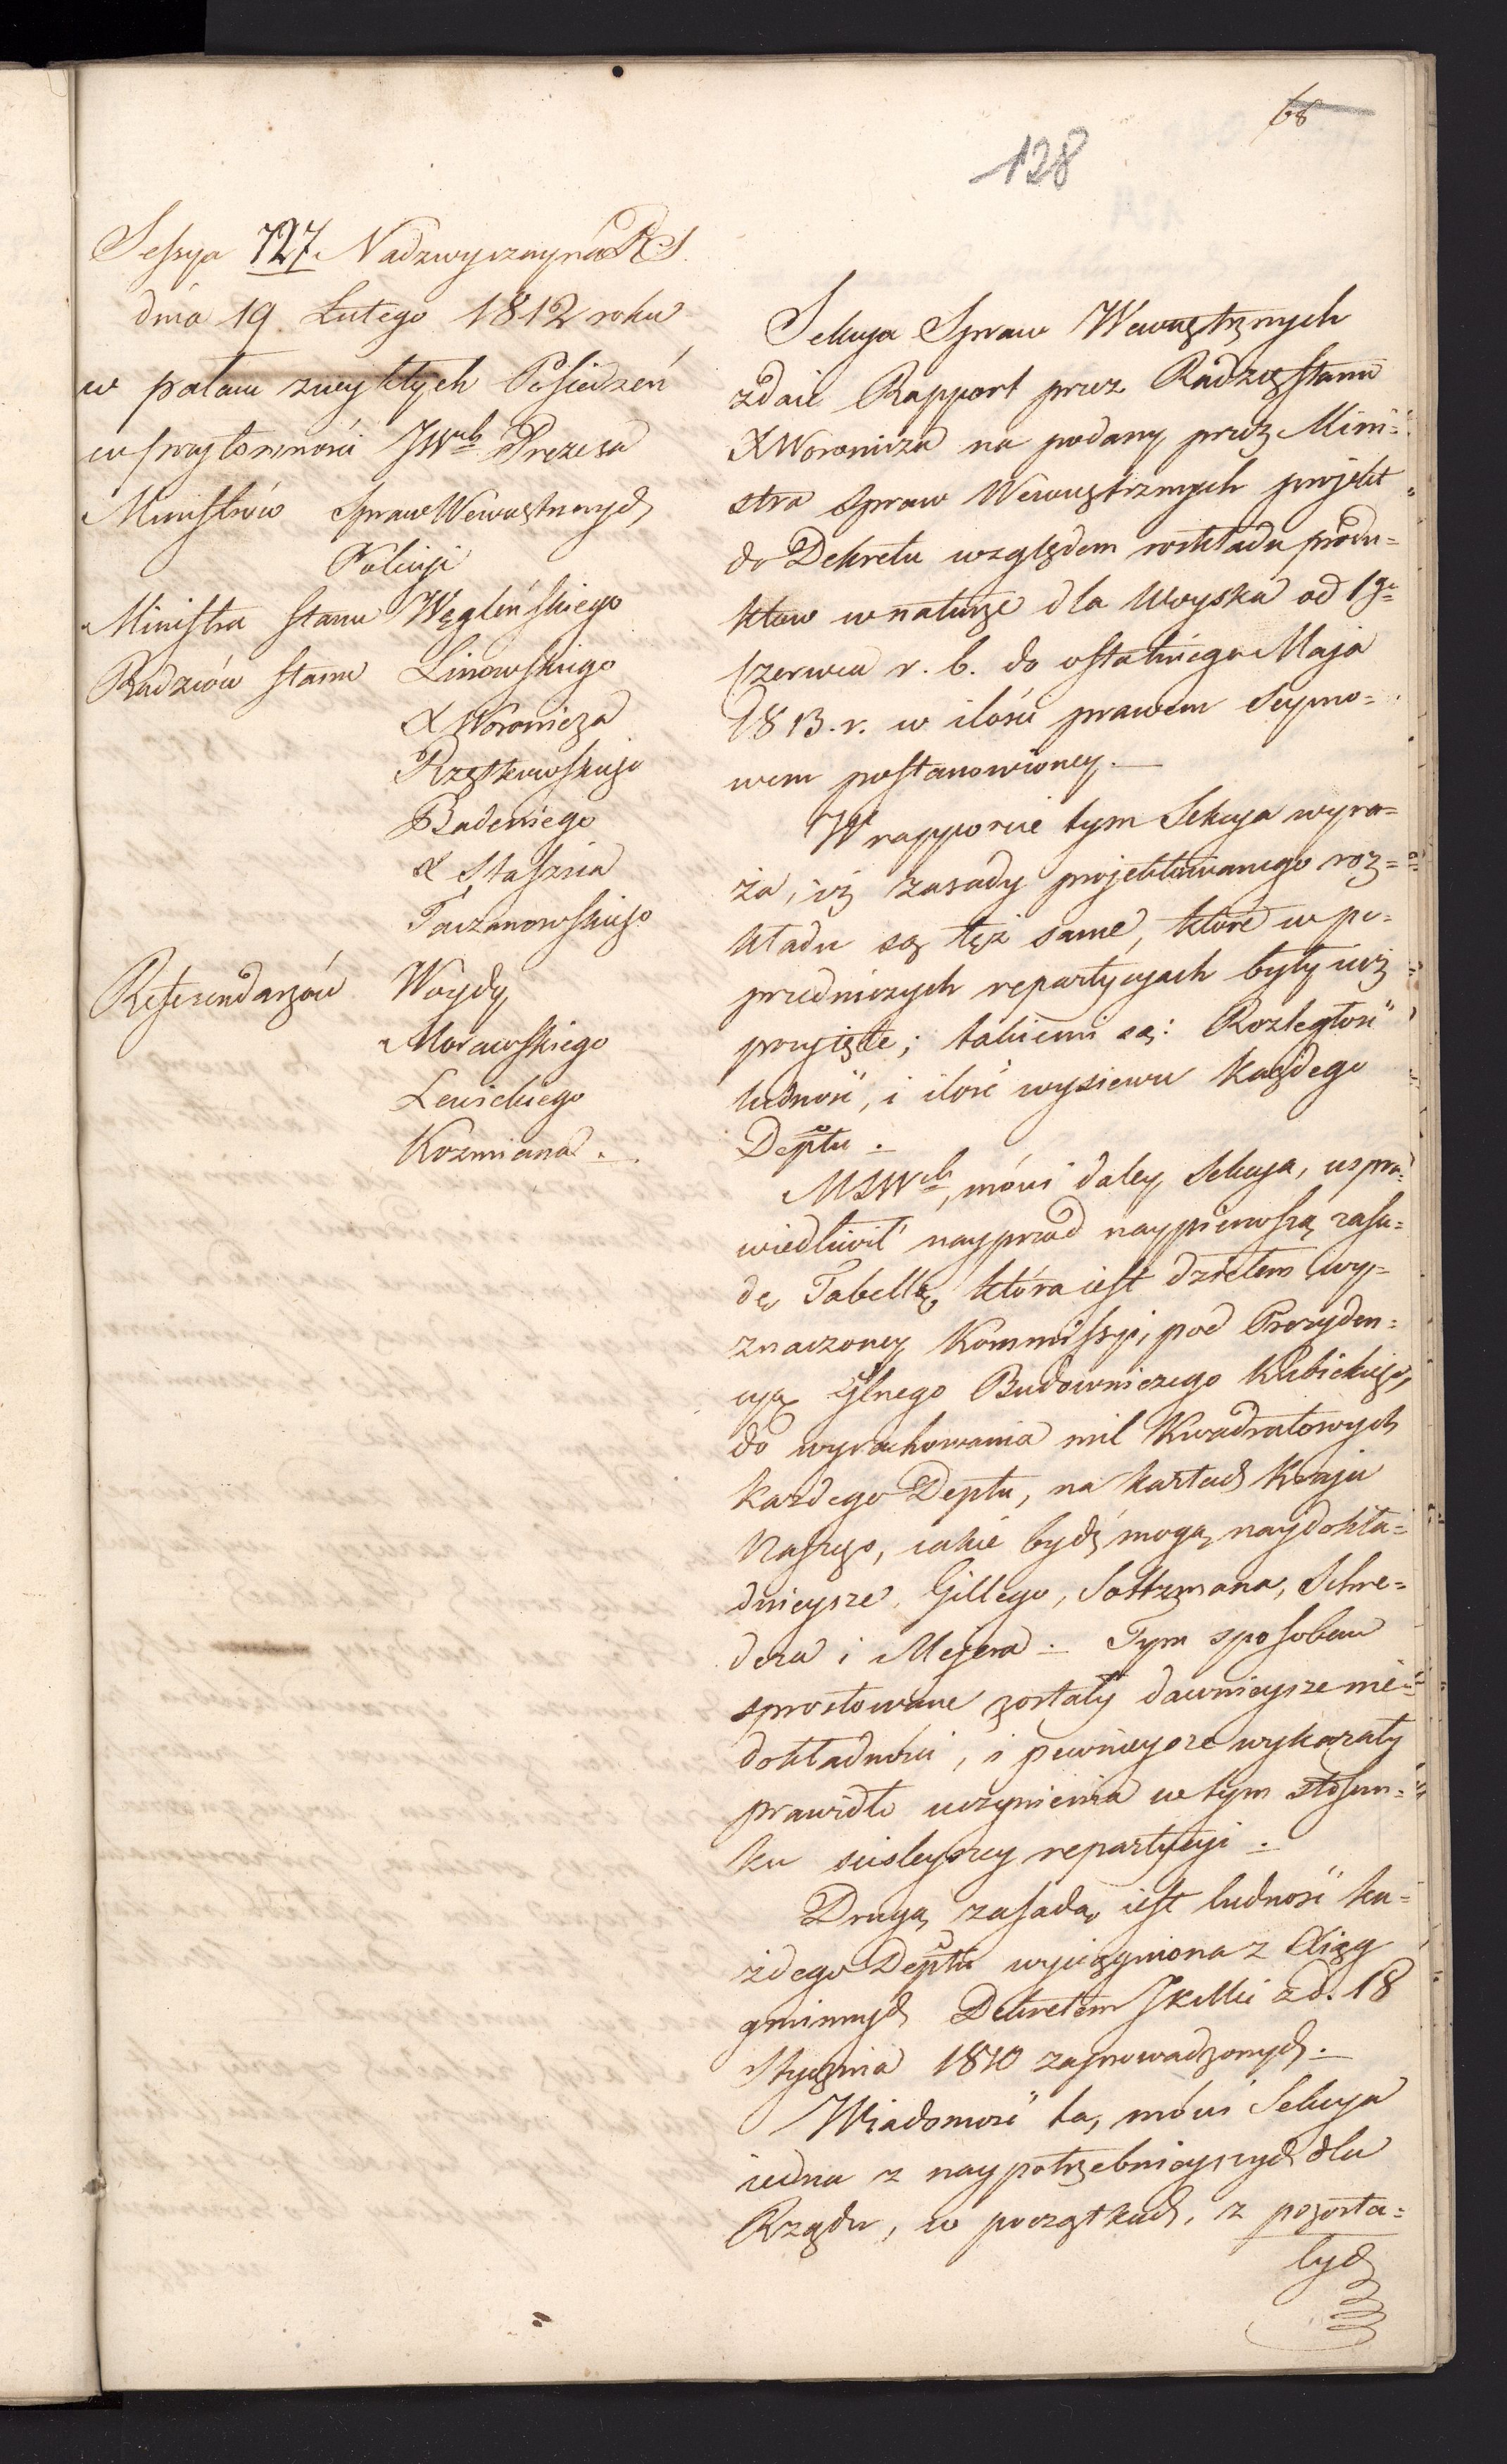 68
128
Sessya 727. Nadzwyczayna R S.
dnia 19 Lutego 1812 roku
w pałacu zwykłych Posiedzeń
w przytomności JWch Prezesa
Ministrów Spraw Wewnętrznych
Policyi
Ministra Stanu Węgleńskiego
Radzców Stanu Linowskiego
X Woronicza
Rzątkowskiego
Badeniego
X Staszica
Taczanowskiego
Referendarzów Woydy
Morawskiego
Lewickiego
Kozmiana.
Sekcya Spraw Wewnętrznych
zdaie Rapport przez Radzcę Stanu
X Woronicza na podany przez Mini=
stra Spraw Wewnętrznych projekt
do Dekretu względem rozkładu produ=
któw w naturze dla Woyska od 1go
Czerwca r. b. do ostatniego Maja
1813. r. w ilości prawem Seymo=
wem postanowioney.
W rapporcie tym Sekcya wyra=
ża, iż zasady projektowanego roz=
kładu są też same, które w po=
przedniczych repartycyach były iuż
przyięte; takiemi są: Rozległość
ludność, i ilość wysiewu każdego
Deptu.
MSWch, mówi daley Sekcya, uspra=
wiedliwił nayprzód naypierwszą zasa=
dę Tabellą, która iest dziełem wy=
znaczoney Kommissyi, pod Prezyden=
cyą Glnego Budowniczego Kubickiego,
do wyrachowania mil Kwadratowych
każdego Deptu, na kartach Kraju
Naszego, iakie bydź mogą naydokła=
dnieysze, Gillego, Sottzmana, Schre=
dera i Mejera. Tym sposobem
sprostowane zostały dawnieysze nie=
dokładności, i pewnieysze wykazały
prawidło uczynienia w tym stosun=
ku ściśleyszey repartycyi.
Drugą zasadą iest ludność ka=
żdego Deptu wyciągniona z Xiąg
gminnych Dekretem JKMci z d. 18
Stycznia 1810 zaprowadzonych.
Wiadomość ta, mówi Sekcya
iedna z naypotrzebnieyszych dla
Rządu, w początkach, z pozosta=
łych